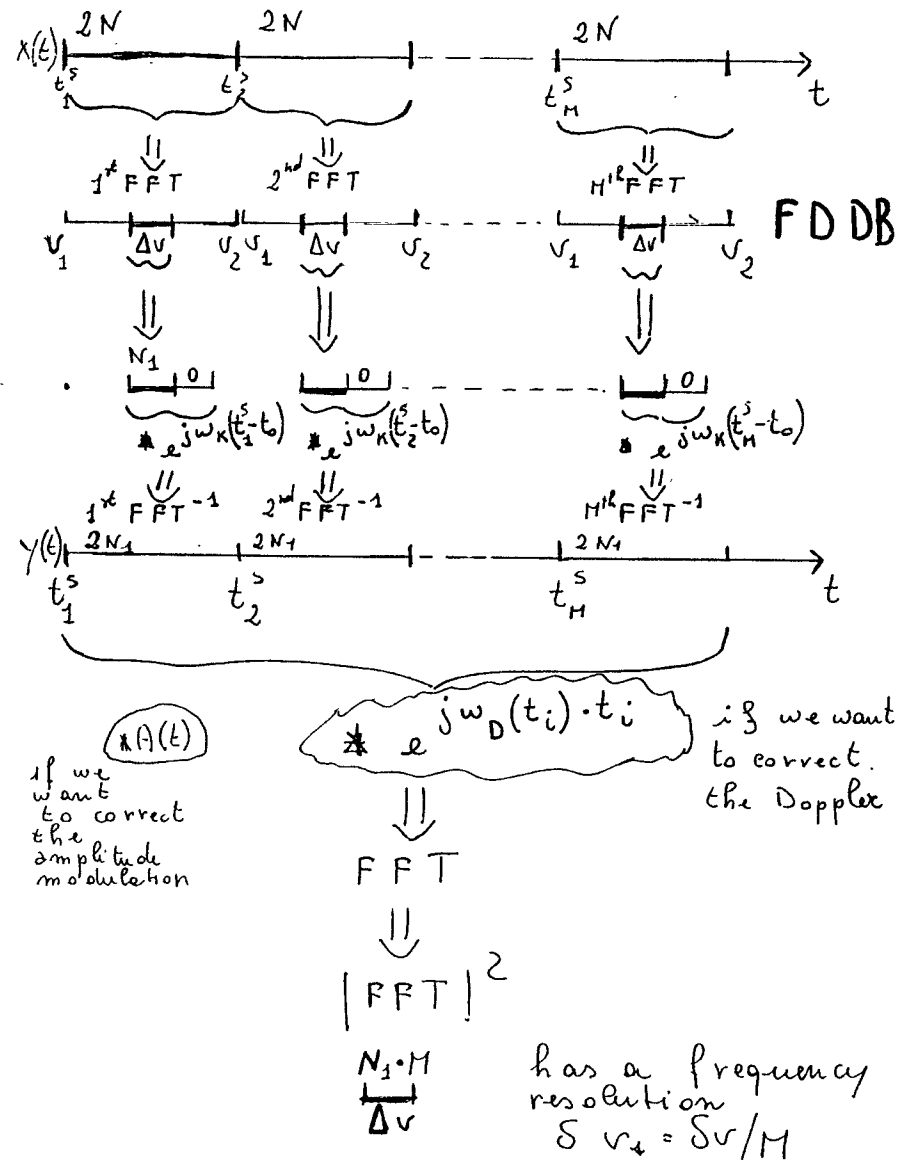 2N 2N 2N
X(t)
t₁ˢ t₂ˢ t_Mˢ t
1st FFT 2nd FFT Mth FFT
FDDB
ν₁ Δν ν₂ ν₁ Δν ν₂ ν₁ Δν ν₂
N₁ 0 0 0
* e^{jω_K(t₁ˢ-t₀)} * e^{jω_K(t₂ˢ-t₀)} * e^{jω_K(t_Mˢ-t₀)}
1st FFT⁻¹ 2nd FFT⁻¹ Mth FFT⁻¹
Y(t) 2N₁ 2N₁ 2N₁
t₁ˢ t₂ˢ t_Mˢ t
*A(t)
if we
want
to correct
the
amplitude
modulation
* e^{jω_D(t_i)·t_i}
if we want
to correct.
the Doppler
FFT
|FFT|²
N₁·M
Δν
has a frequency
resolution
δν₁ = δν/M